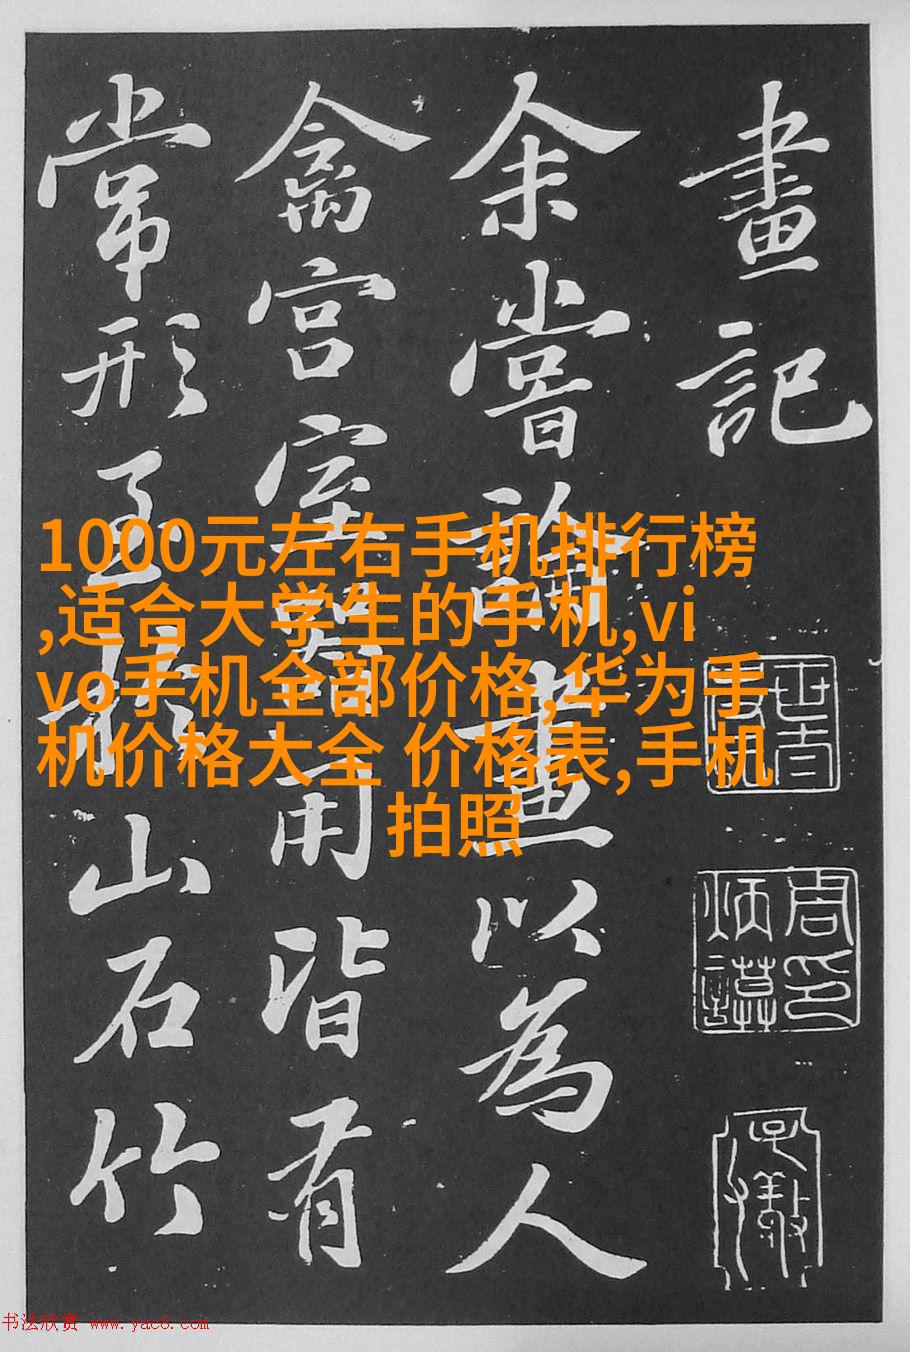 畫記
余嘗論畫以為人
禽宮室器用皆有
常形至於山石竹
1000元左右手机排行榜
,适合大学生的手机,vi
vo手机全部价格,华为手
机价格大全 价格表,手机
拍照
书法欣赏 www.yac8.com